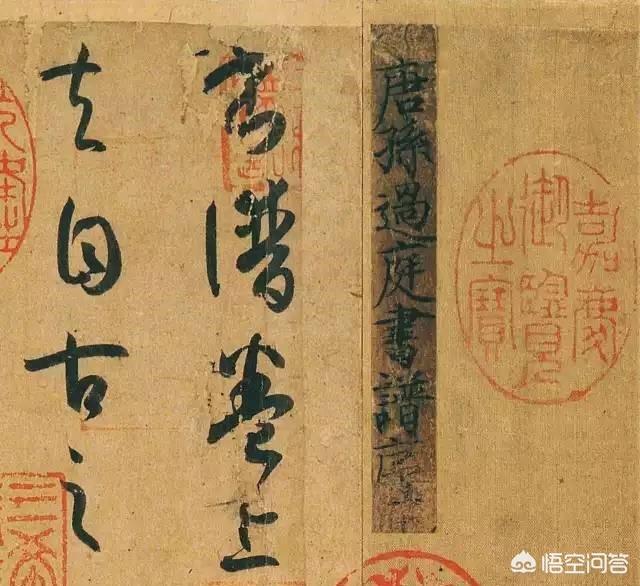 嘉慶御覽之寶
唐孫過庭書譜序
書譜卷上
夫自古之
悟空问答